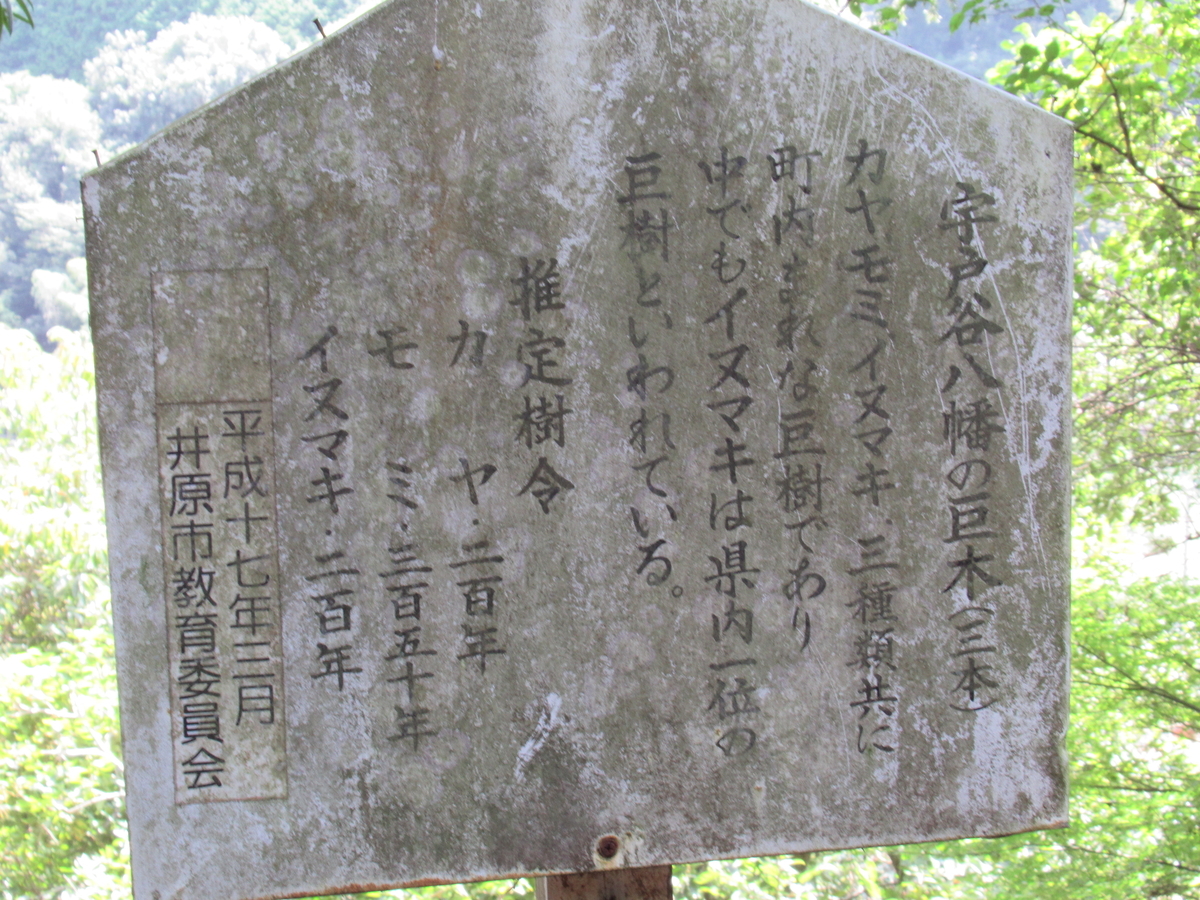 宇戸谷八幡の巨木(三本)
カヤモミイヌマキ.三種類共に
町内まれな巨樹であり
中でもイヌマキは県内一位の
巨樹といわれている。
推定樹令
カヤ.二百年
モミ.三百五十年
イヌマキ.二百年
平成十七年三月
井原市教育委員会